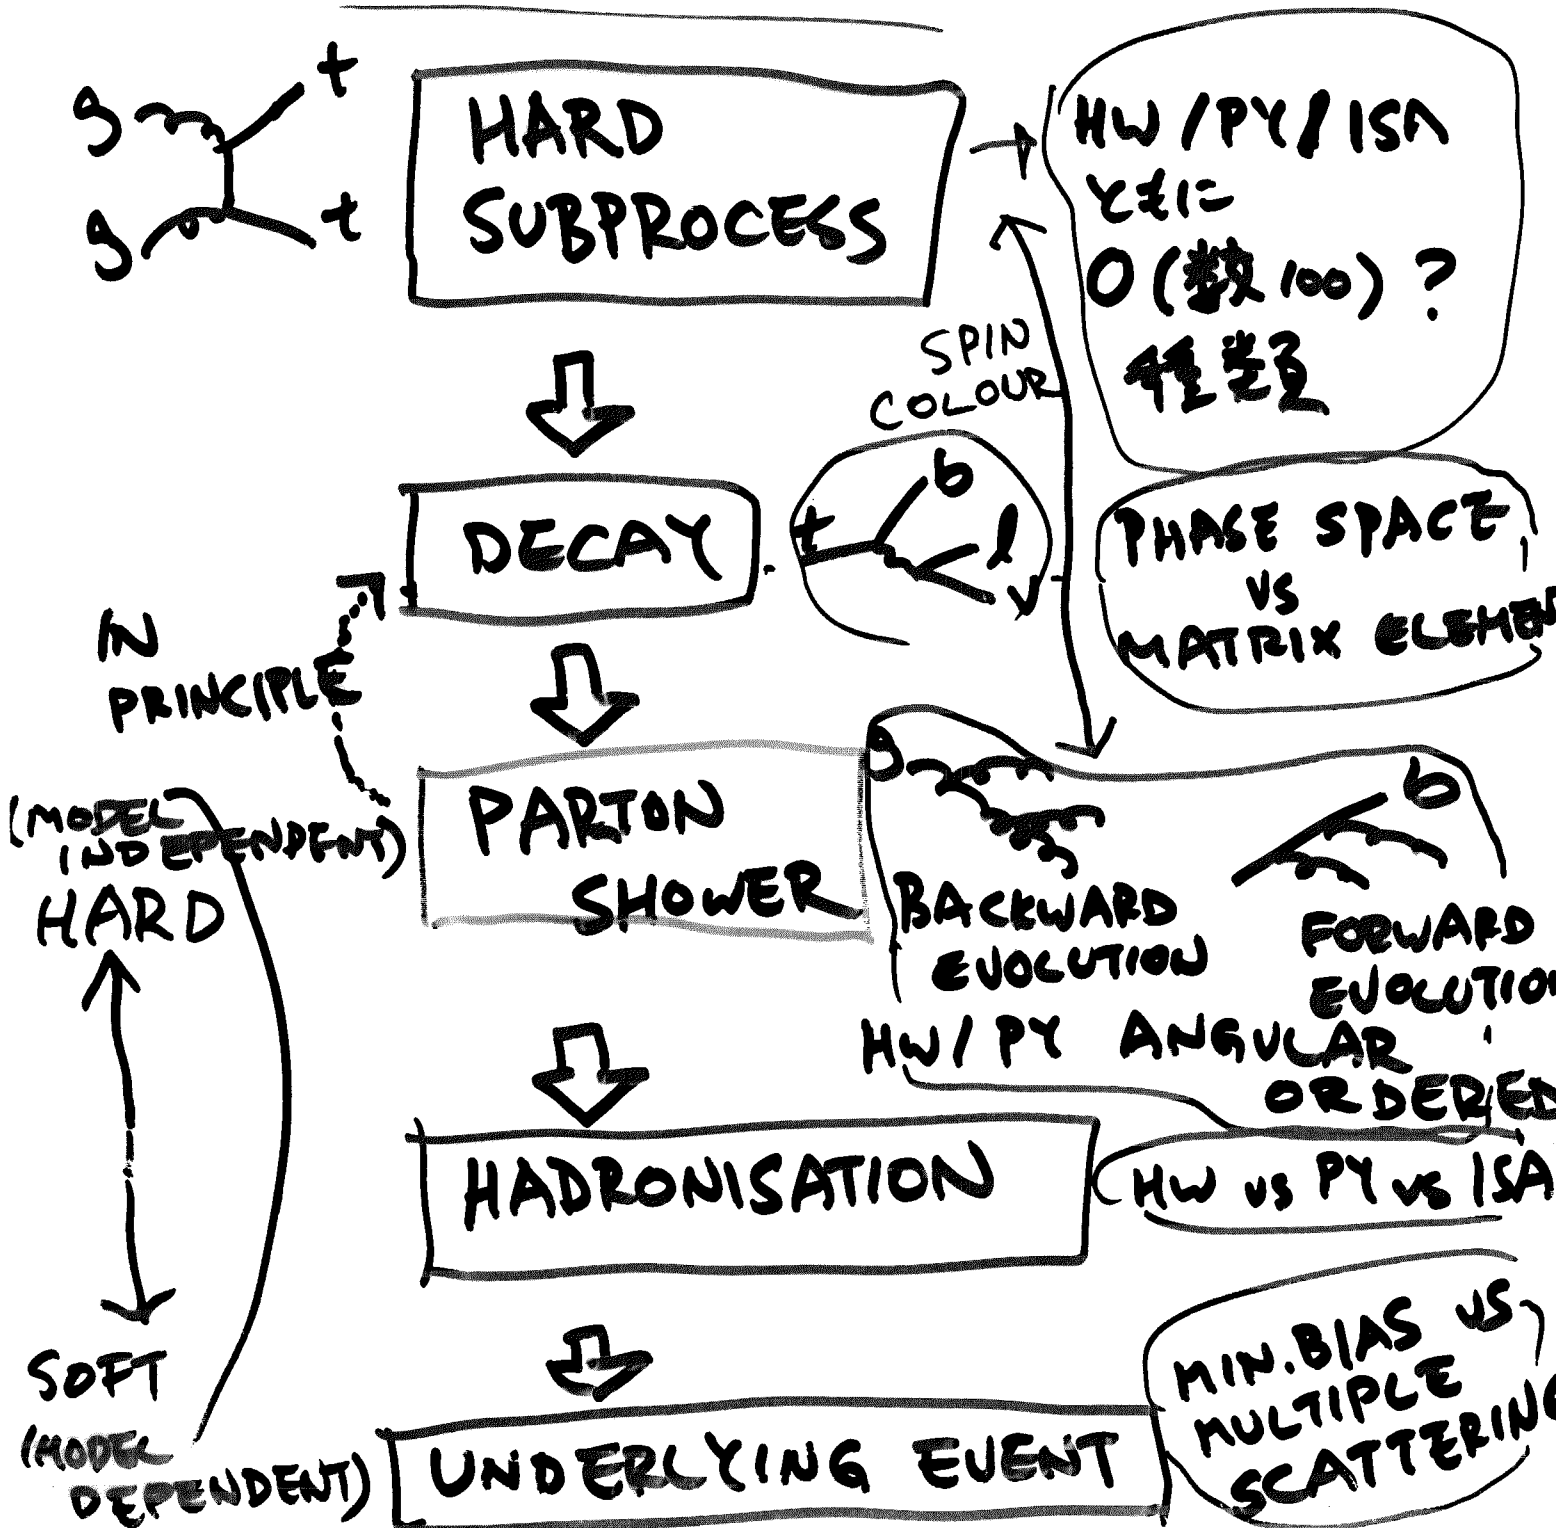 g
t
g
t
HARD
SUBPROCESS
HW / PY / ISA
ともに
O (数100) ?
種類
SPIN
COLOUR
DECAY
t
b
l
ν
PHASE SPACE
vs
MATRIX ELEMEN
IN
PRINCIPLE
PARTON
SHOWER
g
b
BACKWARD
EVOLUTION
FORWARD
EVOLUTION
HW / PY ANGULAR
ORDERED
(MODEL
INDEPENDENT)
HARD
HADRONISATION
HW vs PY vs ISA
SOFT
(MODEL
DEPENDENT)
UNDERLYING EVENT
MIN. BIAS vs
MULTIPLE
SCATTERING